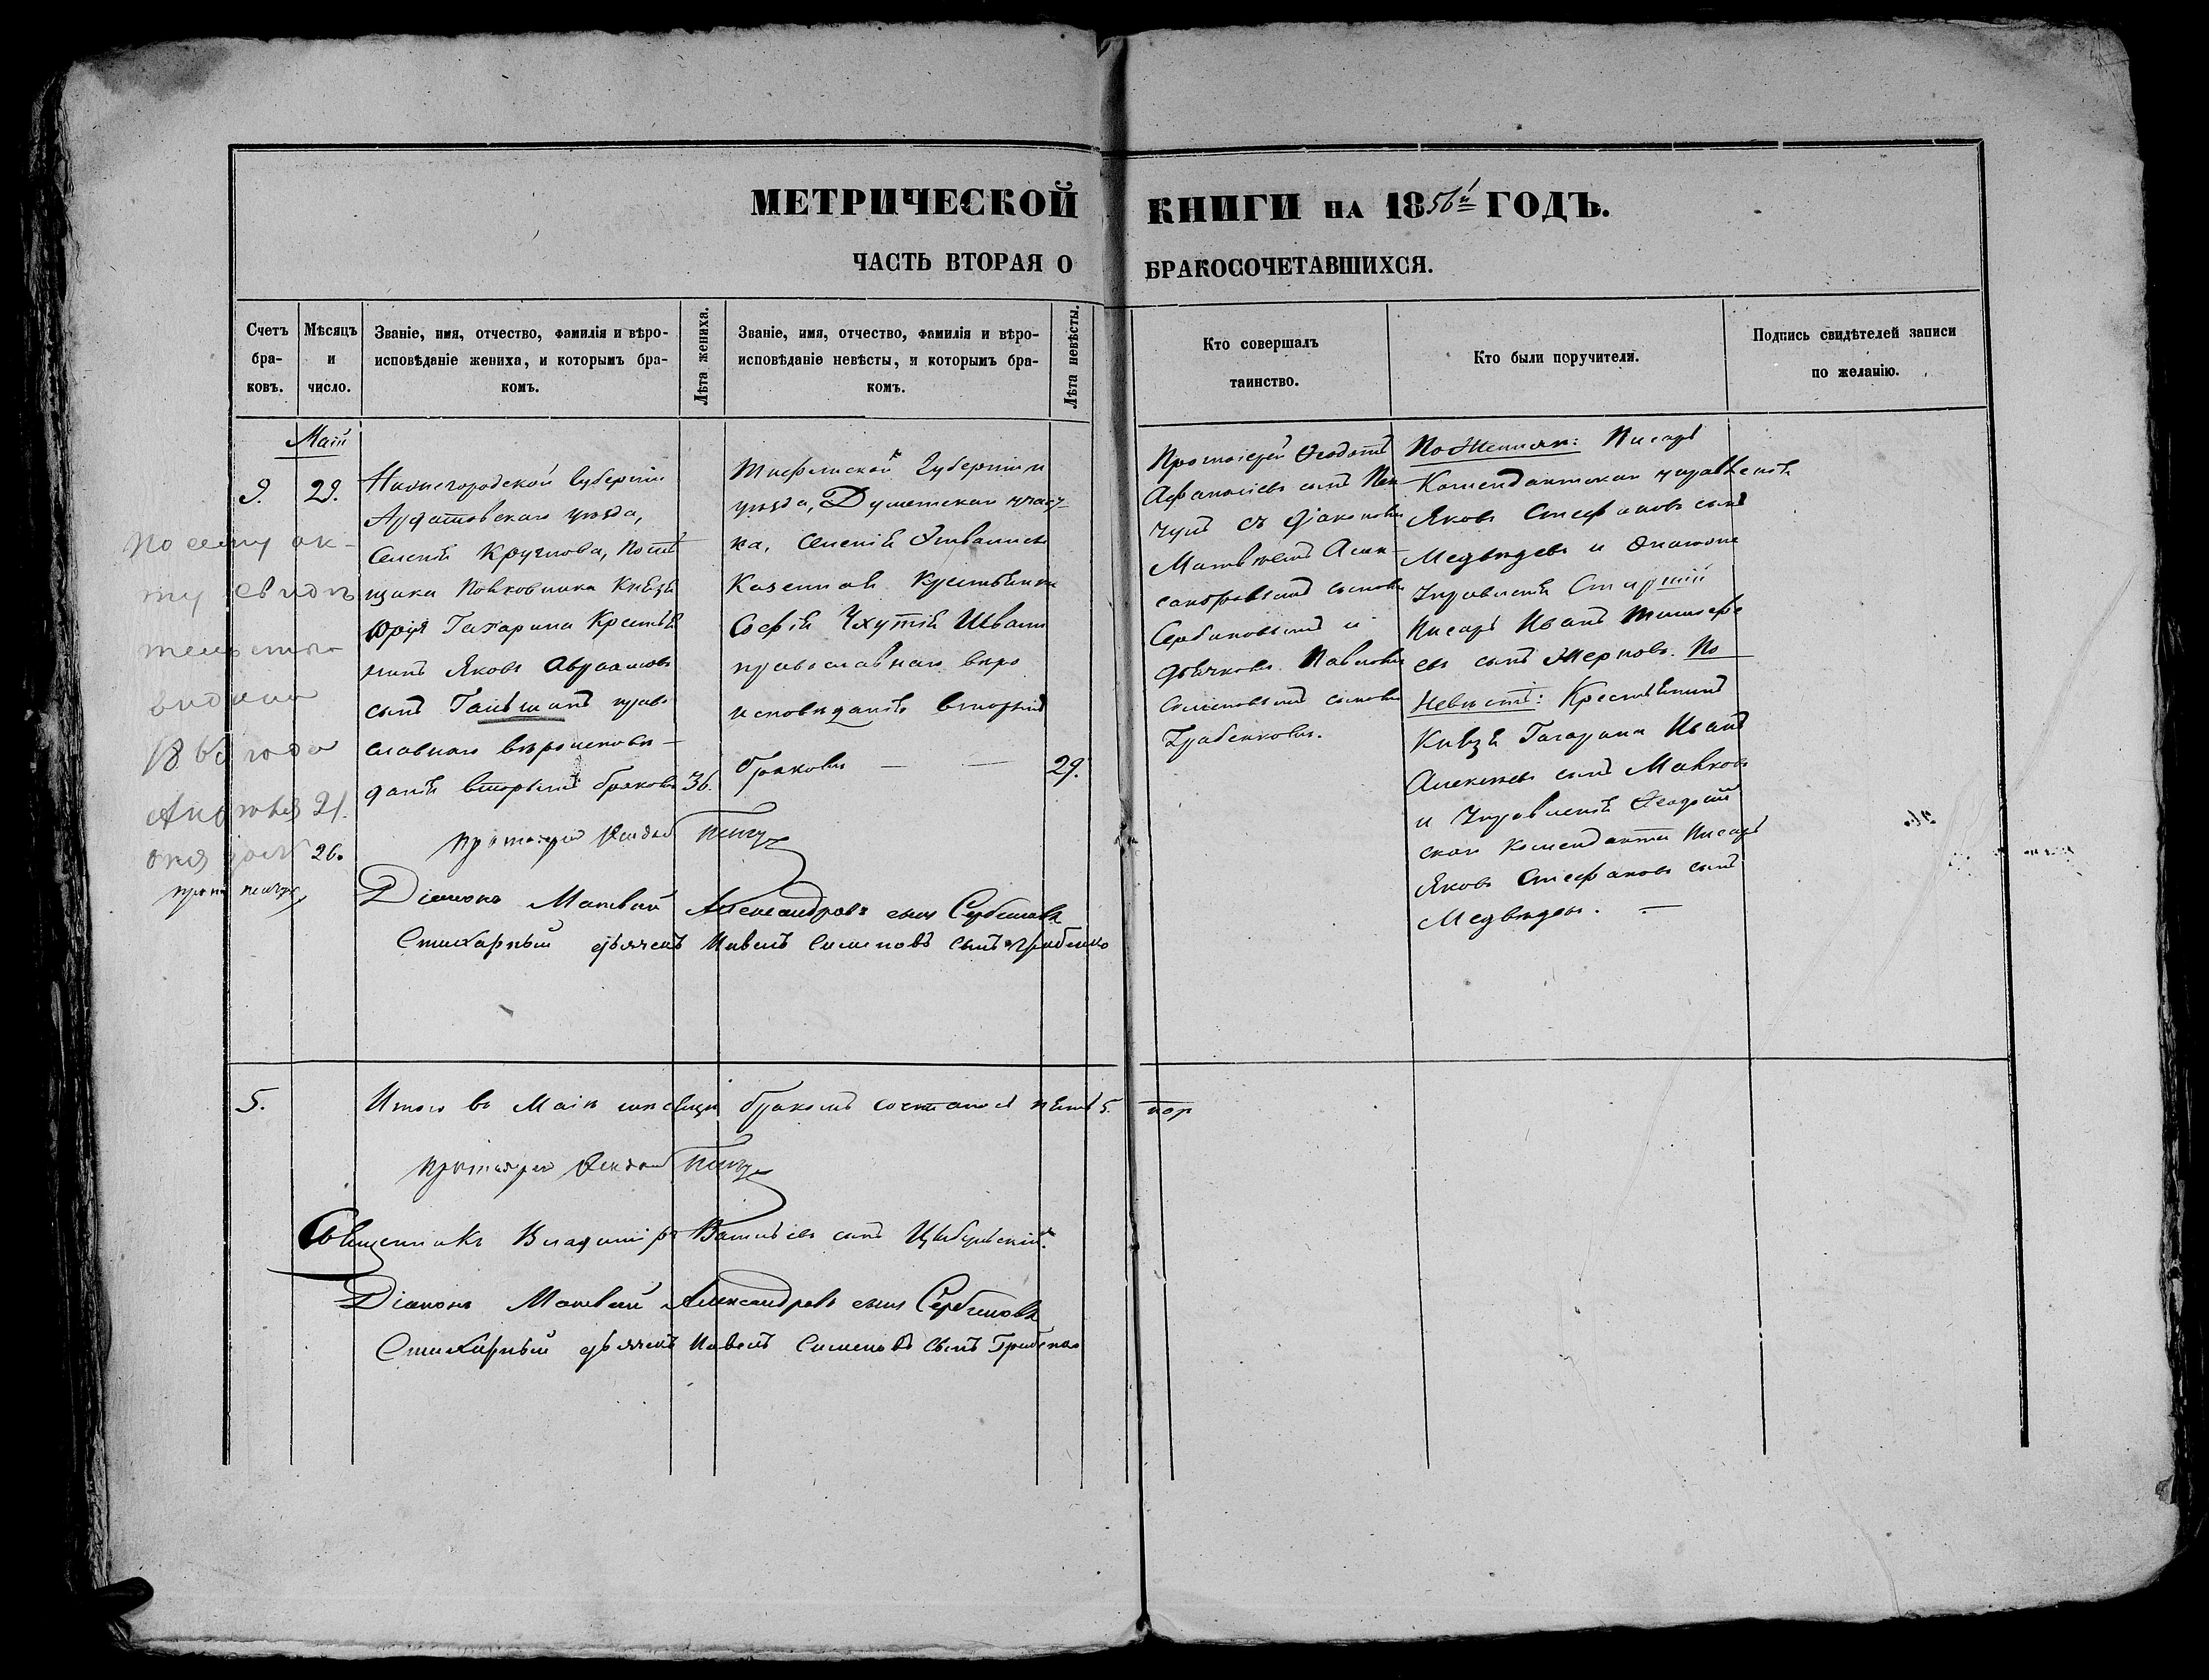 МЕТРИЧЕСКОЙ КНИГИ НА 1856й ГОДЪ.
ЧАСТЬ ВТОРАЯ О БРАКОСОЧЕТАВШИХСЯ.
Счетъ
бра-
ковъ.
Мѣсяцъ
и
число.
Званіе, имя, отчество, фамилія и вѣро-
исповѣданіе жениха, и которымъ бра-
комъ.
Лѣта жениха.
Званіе, имя, отчество, фамилія и вѣро-
исповѣданіе невѣсты, и которымъ бра-
комъ.
Лѣта невѣсты.
Кто совершалъ
таинство.
Кто были поручители.
Подпись свидѣтелей записи
по желанію.
Май
9.
29.
Нижегородской Губерніи
Ардатовскаго уѣзда,
Селенія Круглова, Помѣ
щика Полковника Князя
Юрія Гагарина Крестья
нинъ Яковъ Авраамовъ
сынъ православ
славнаго вѣроисповѣ-
данія вторымъ бракомъ
36.
Тифлиской Губерніи и
уѣзда, Душетскаго участ
ка, Селенія
Казенная Крестьянка
Софія
православнаго вѣро
исповѣданія вторымъ
бракомъ — —
29.
Протоіерей Ѳеодотъ
Афанасіевъ сынъ Пен
чулъ съ Діакономъ
Матвѣемъ Алек-
сандровымъ сыномъ
Сербиновымъ и
дьячкомъ Павломъ
Симеоновымъ сыномъ
Грабенковымъ.
По Женихѣ: Писарь
Комендантскаго управленія
Яковъ Стефановъ сынъ
Медвѣдевъ и
Управленія Старшій
Писарь Иванъ Тимофе
евъ сынъ Жерновъ. По
Невѣстѣ: Крестьянинъ
Князя Гагарина Иванъ
Алексѣевъ сынъ Малковъ
и Управленія Ѳеодосій
скаго Коменданта Писарь
Яковъ Стефановъ сынъ
Медвѣдевъ. —
По сему ак-
ту свидѣ
тельство
выдано
года
21.
26.
Протоіерей Ѳеодотъ Пенчул
Діаконъ Матвей Александровъ сынъ Сербиновъ
Стихарный дьячекъ Павелъ Симеоновъ сынъ Грабенко
5.
Итого въ Маіѣ мѣсяцѣ бракомъ состоялось пять 5. пар
Протоіерей Ѳеодотъ Пенчул
Священникъ Владиміръ Васильевъ сынъ Цыбульскій.
Діаконъ Матвей Александровъ сынъ Сербиновъ
Стихарный дьячекъ Павелъ Симеоновъ сынъ Грабенко